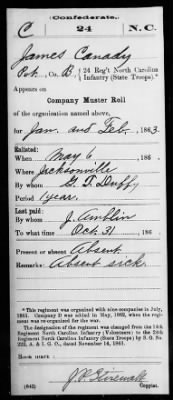 Confederate.
C 24 N.C.
James Canady
Pvt., Co. B, 24 Reg't North Carolina
Infantry (State Troops).*
Appears on
Company Muster Roll
of the organization named above,
for Jan. and Feb., 1863.
Enlisted:
When May 6, 186
Where Jacksonville
By whom G. T. Duffy
Period 1 year
Last paid:
By whom J. Amblin
To what time Oct. 31, 186
Present or absent Absent
Remarks: Absent sick.
*This regiment was organized with nine companies in July,
1861. Company D was added in May, 1862, when the regi-
ment was re-organized.
The designation of the regiment was changed from the 14th
Regiment North Carolina Infantry (Volunteers) to the 24th
Regiment North Carolina Infantry (State Troops) by S. O. No.
222, A. & I. G. O., dated November 14, 1861.
Book mark:
(642)
Copyist.